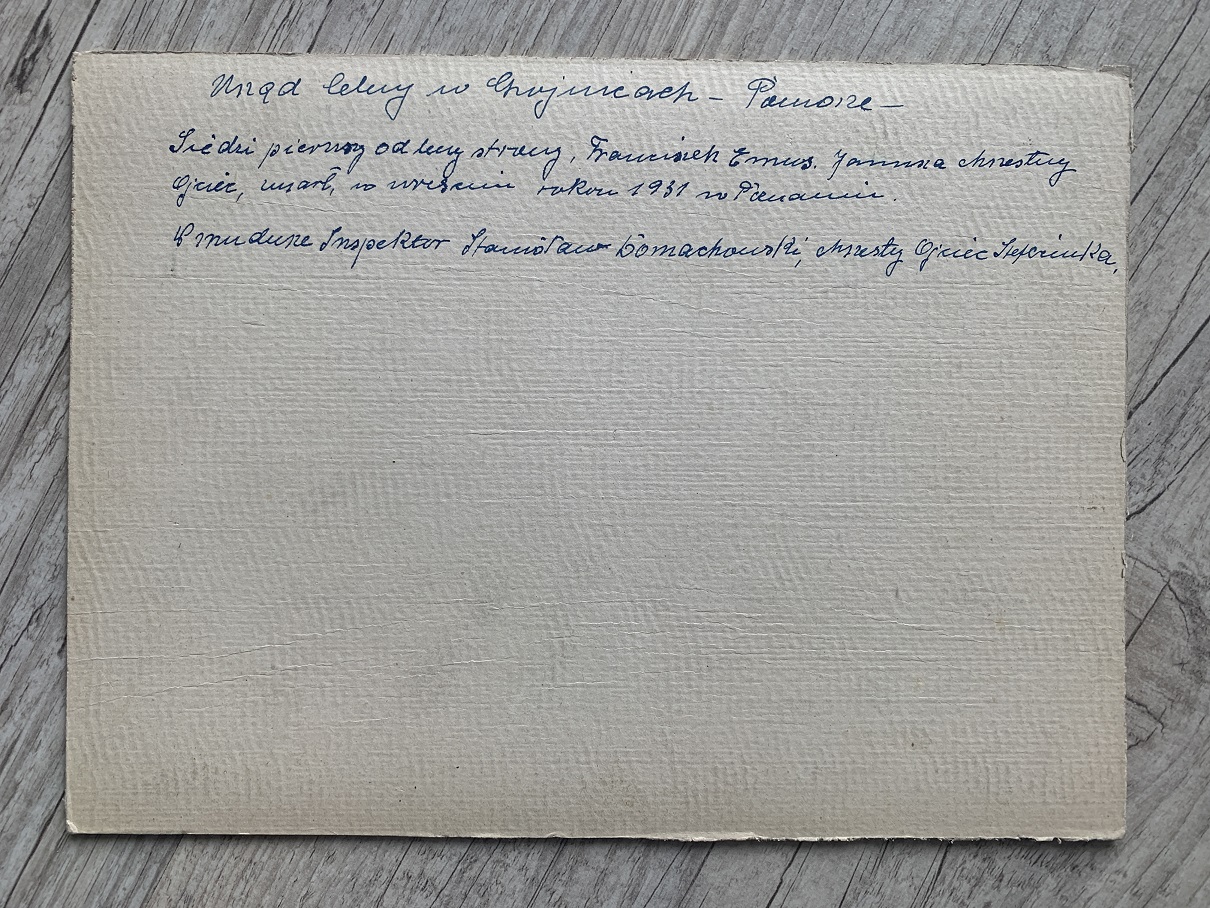 Urząd Celny w Chojnicach – Pomorze –
Siedzi pierwszy od lewej strony, Franciszek Emus. Janusza chrzestny
Ojciec, zmarł, w wrześniu rokou 1931 w Poznaniu.
W mundurze Inspektor Stanisław Domachowski, chrzesty Ojciec Stefcinka,